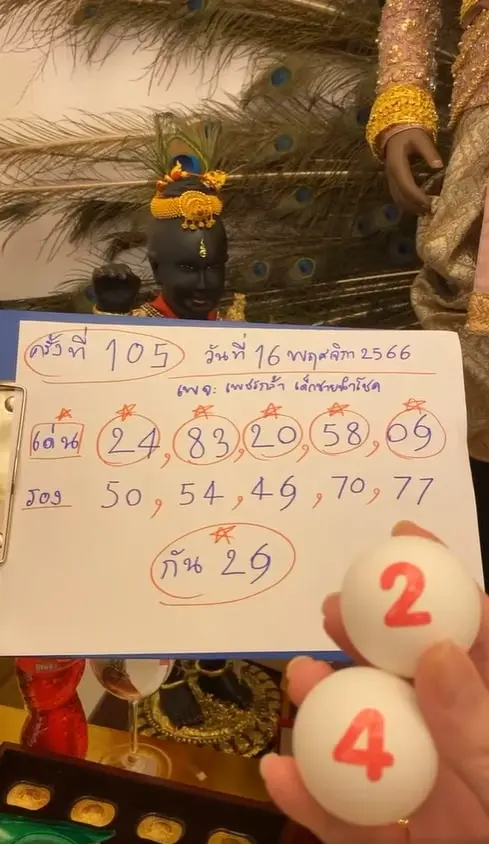 ครั้งที่ 105 วันที่ 16 พฤศจิกา 2566
เพจ: เพชรกล้า เด็กชายนำโชค
เด่น 24, 83, 20, 58, 09
รอง 50, 54, 49, 70, 77
กัน 29
2
4